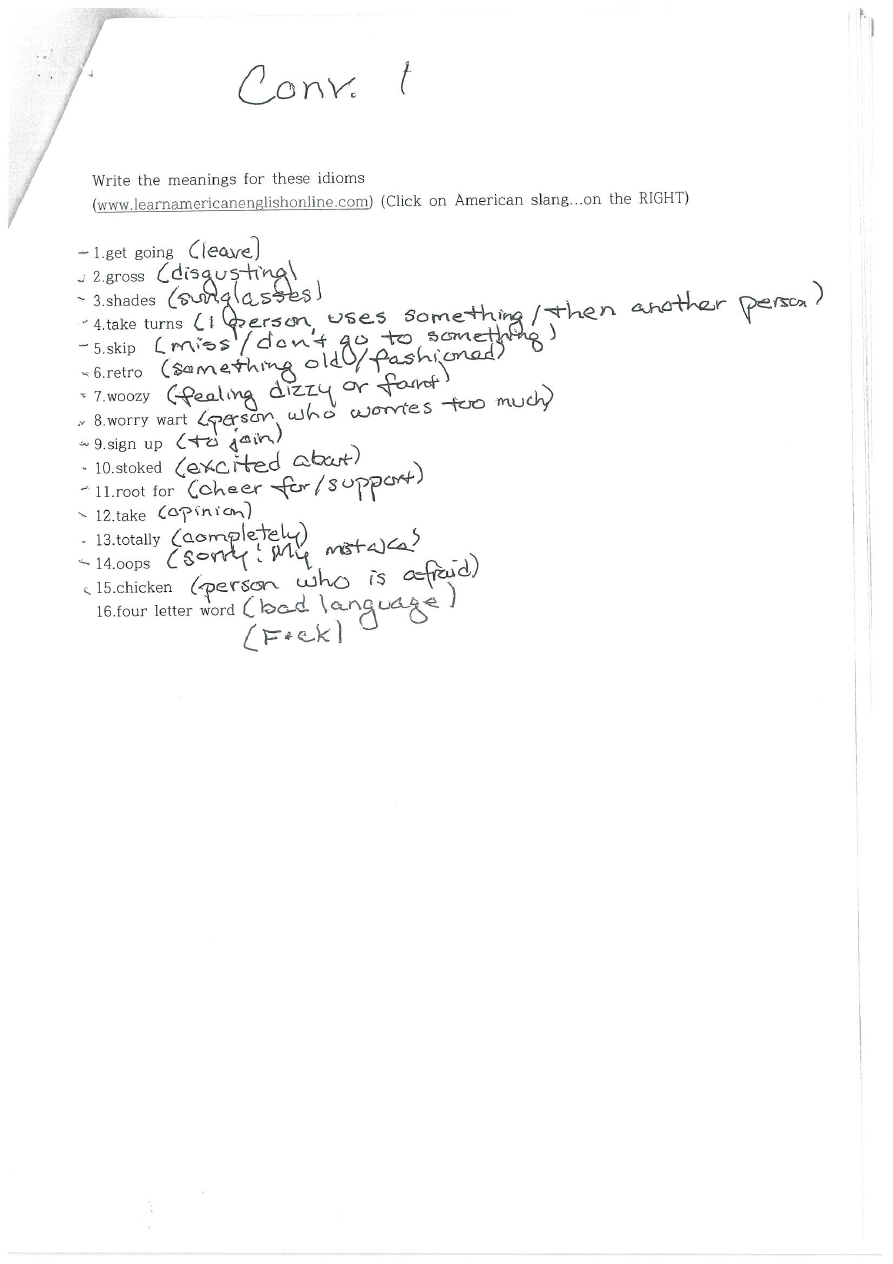 Conv. 1
Write the meanings for these idioms
(www.learnamericanenglishonline.com) (Click on American slang...on the RIGHT)
1.get going (leave)
2.gross (disgusting)
3.shades (sunglasses)
4.take turns (1 person uses something/then another person)
5.skip (miss/don't go to something)
6.retro (something old/fashioned)
7.woozy (feeling dizzy or faint)
8.worry wart (person who worries too much)
9.sign up (to join)
10.stoked (excited about)
11.root for (cheer for/support)
12.take (opinion)
13.totally (completely)
14.oops (sorry! My mistake)
15.chicken (person who is afraid)
16.four letter word (bad language)
(F*ck)